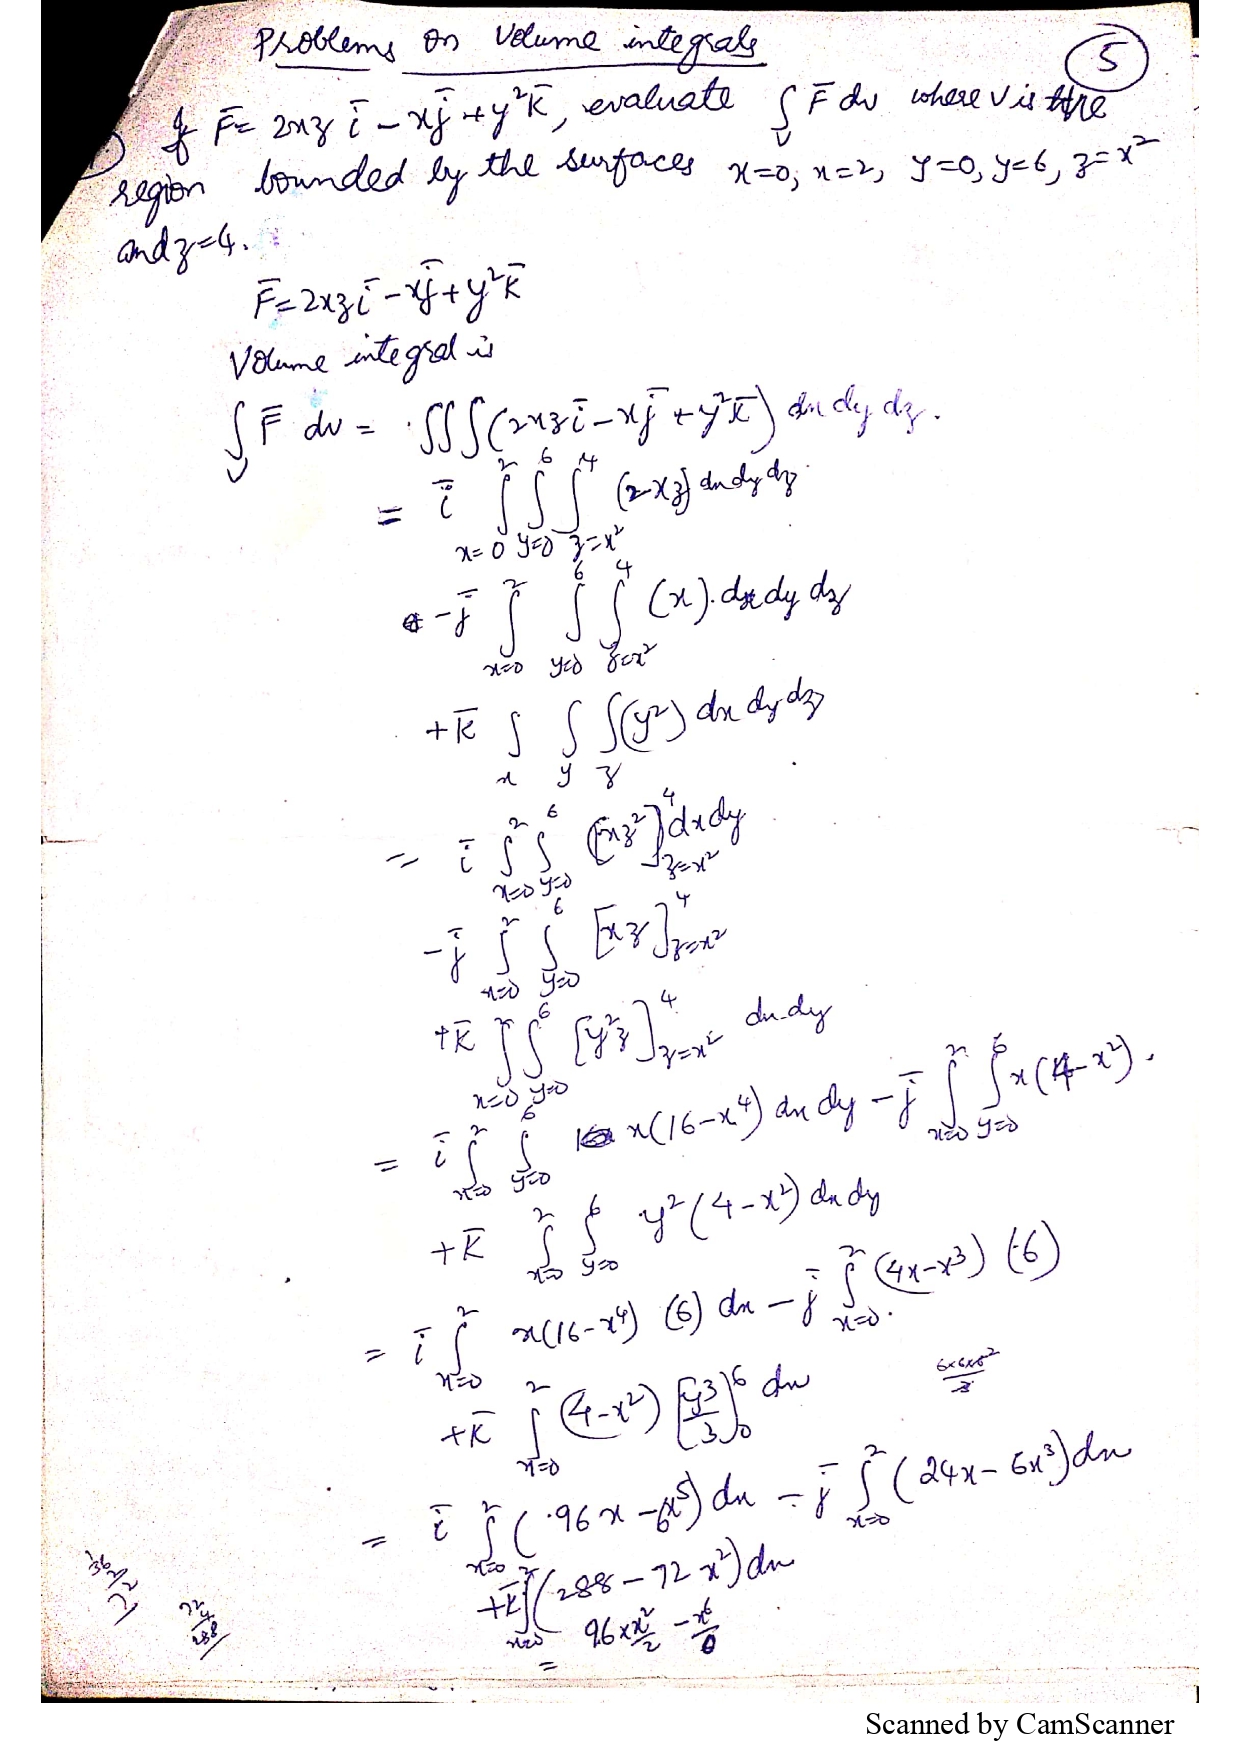 Problems on Volume integrals
5
If F̄ = 2xz ī - x j̄ + y² k̄, evaluate ∫_V F̄ dv where V is the
region bounded by the surfaces x=0, x=2, y=0, y=6, z=x²
and z=4.
F̄ = 2xz ī - x j̄ + y² k̄
Volume integral is
∫_V F̄ dv = ∫∫∫ (2xz ī - x j̄ + y² k̄) dx dy dz.
= ī ∫_{x=0}^{2} ∫_{y=0}^{6} ∫_{z=x²}^{4} (2xz) dx dy dz
- j̄ ∫_{x=0}^{2} ∫_{y=0}^{6} ∫_{z=x²}^{4} (x). dx dy dz
+ k̄ ∫_x ∫_y ∫_z (y²) dx dy dz
= ī ∫_{x=0}^{2} ∫_{y=0}^{6} [xz²]_{z=x²}^{4} dx dy
- j̄ ∫_{x=0}^{2} ∫_{y=0}^{6} [xz]_{z=x²}^{4}
+ k̄ ∫_{x=0}^{2} ∫_{y=0}^{6} [y²z]_{z=x²}^{4} dx dy
= ī ∫_{x=0}^{2} ∫_{y=0}^{6} x(16-x⁴) dx dy - j̄ ∫_{x=0}^{2} ∫_{y=0}^{6} x(4-x²).
+ k̄ ∫_{x=0}^{2} ∫_{y=0}^{6} y²(4-x²) dx dy
= ī ∫_{x=0}^{2} x(16-x⁴) (6) dx - j̄ ∫_{x=0}^{2} (4x-x³) (6)
+ k̄ ∫_{x=0}^{2} (4-x²) [y³/3]_0^6 dx
= ī ∫_{x=0}^{2} (96x - 6x⁵) dx - j̄ ∫_{x=0}^{2} (24x - 6x³) dx
+ k̄ ∫_{x=0}^{2} (288 - 72x²) dx
96 × x²/2 - x⁶/6
=
Scanned by CamScanner